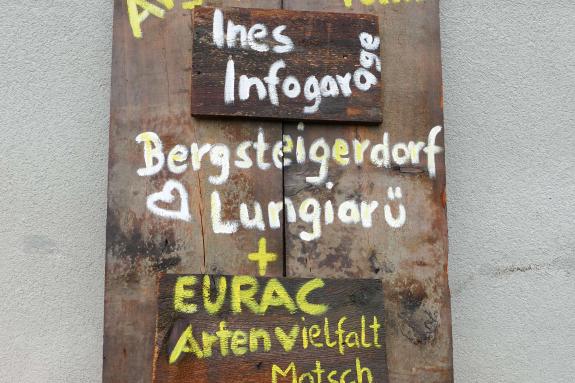 Ines
Infogarage
Bergsteigerdorf
Lungiarü
+
EURAC
Artenvielfalt
Matsch